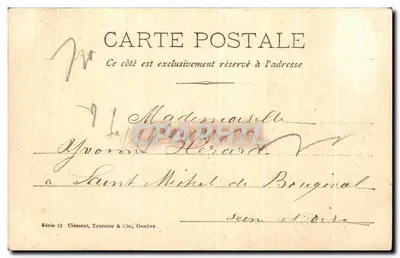 CARTE POSTALE
Ce côté est exclusivement réservé à l'adresse
Mademoiselle
Yvonne Hérard
à Saint Michel de Bougival
Seine et Oise
Série 13 Clément, Tournier & Cie., Genève